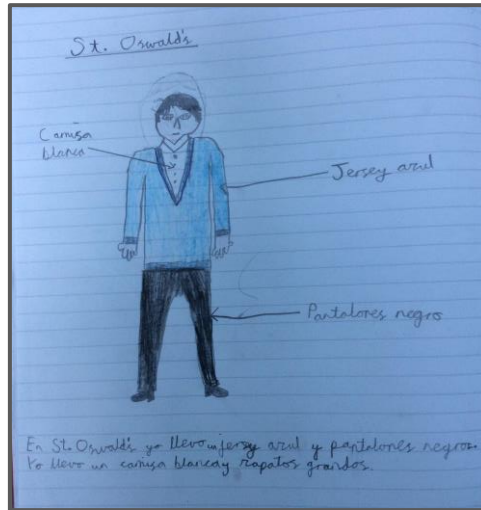 St. Oswald's
Camisa
blanca
Jersey azul
Pantalones negro
En St. Oswald's yo llevo un jersey azul y pantalones negros.
Yo llevo un camisa blanca y zapatos grandos.